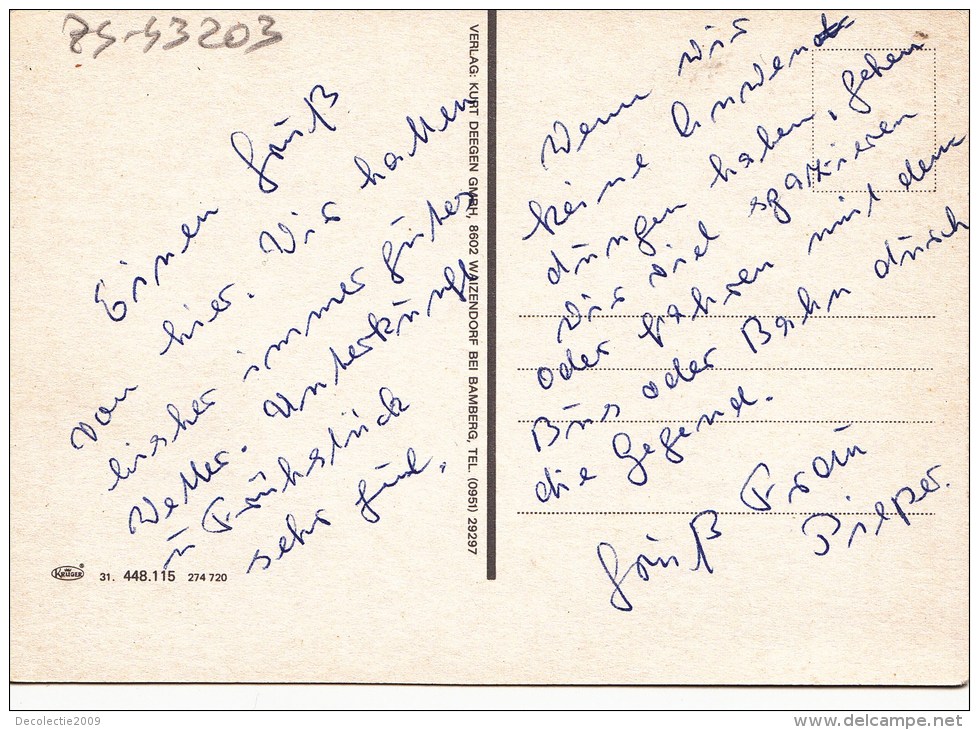 ZS-53203
Einen Gruß
von hier. Wir hatten
bisher immer guter
Wetter. Unterkunft
u Frühstück
sehr gut.
VERLAG: KURT DEEGEN GMBH, 8602 WAIZENDORF BEI BAMBERG, TEL. (0951) 29297
Wenn wir
keine Anwen
dungen haben, gehen
wir viel spazieren
oder fahren mit dem
Bus oder Bahn durch
die Gegend.
Gruß Frau
Pieper.
KRÜGER 31. 448.115 274 720
Decolectie2009
www.delcampe.net